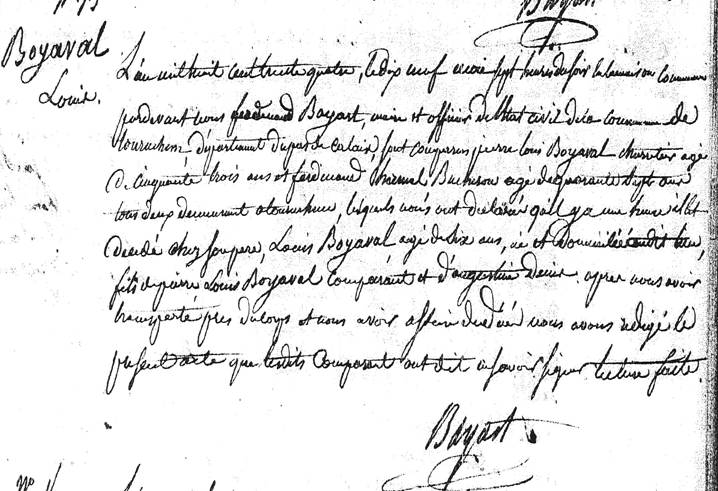 Boyaval
Louis.
L'an mil huit cent trente quatre, le dix neuf mai à sept heures du soir en la maison commune
pardevant nous ferdinand Bayart, maire et officier de l'état civil de la commune de
département du pas de Calais, sont comparus pierre louis Boyaval charretier agé
de cinquante trois ans et ferdinand Bucheron agé de quarante sept ans
tous deux demeurant a lesquels nous ont déclaré qu'il y a une heure il est
décédé chez son pere, Louis Boyaval agé de dix ans, né et domicilié audit lieu,
fils de pierre Louis Boyaval Comparant et d'augustine après nous avoir
transporté près du corps et nous avoir assuré du décès nous avons rédigé le
présent acte que lesdits Comparant ont dit ne savoir signer lecture faite.
Bayart